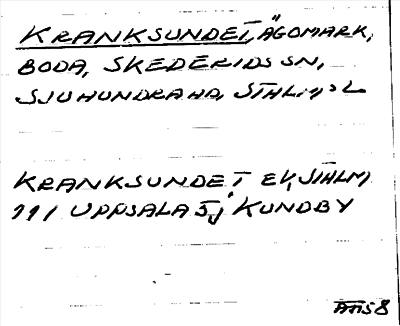 KRANKSUNDET, ÄGOMARK,
BODA, SKEDERIDS SN,
SJUHUNDRA HD, STHLMS L
KRANKSUNDET EK, STHLM
111 UPPSALA 5j KUNDBY